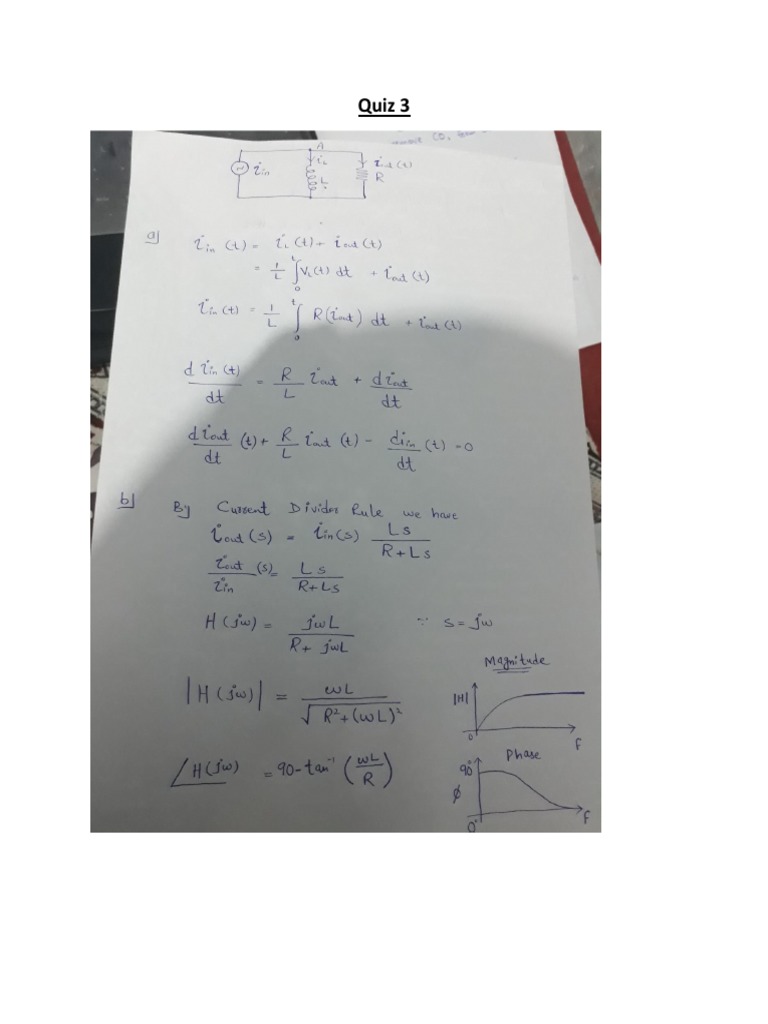 Quiz 3
A
i_in
i_L
L
i_out(t)
R
a]
i_in (t) = i_L(t) + i_out(t)
= 1/L ∫₀ᵗ V_L(t) dt + i_out(t)
i_in(t) = 1/L ∫₀ᵗ R(i_out) dt + i_out(t)
d i_in(t)/dt = R/L i_out + d i_out/dt
d i_out/dt (t) + R/L i_out (t) - d i_in/dt (t) = 0
b] By Current Divider Rule we have
i_out(s) = i_in(s) Ls/R+Ls
i_out/i_in (s) = Ls/R+Ls
H(jω) = jωL/R+jωL ∵ s = jω
Magnitude
|H(jω)| = ωL/√R²+(ωL)²
|H|
0
f
∠H(jω) = 90-tan⁻¹(ωL/R)
Phase
90°
ϕ
0°
f